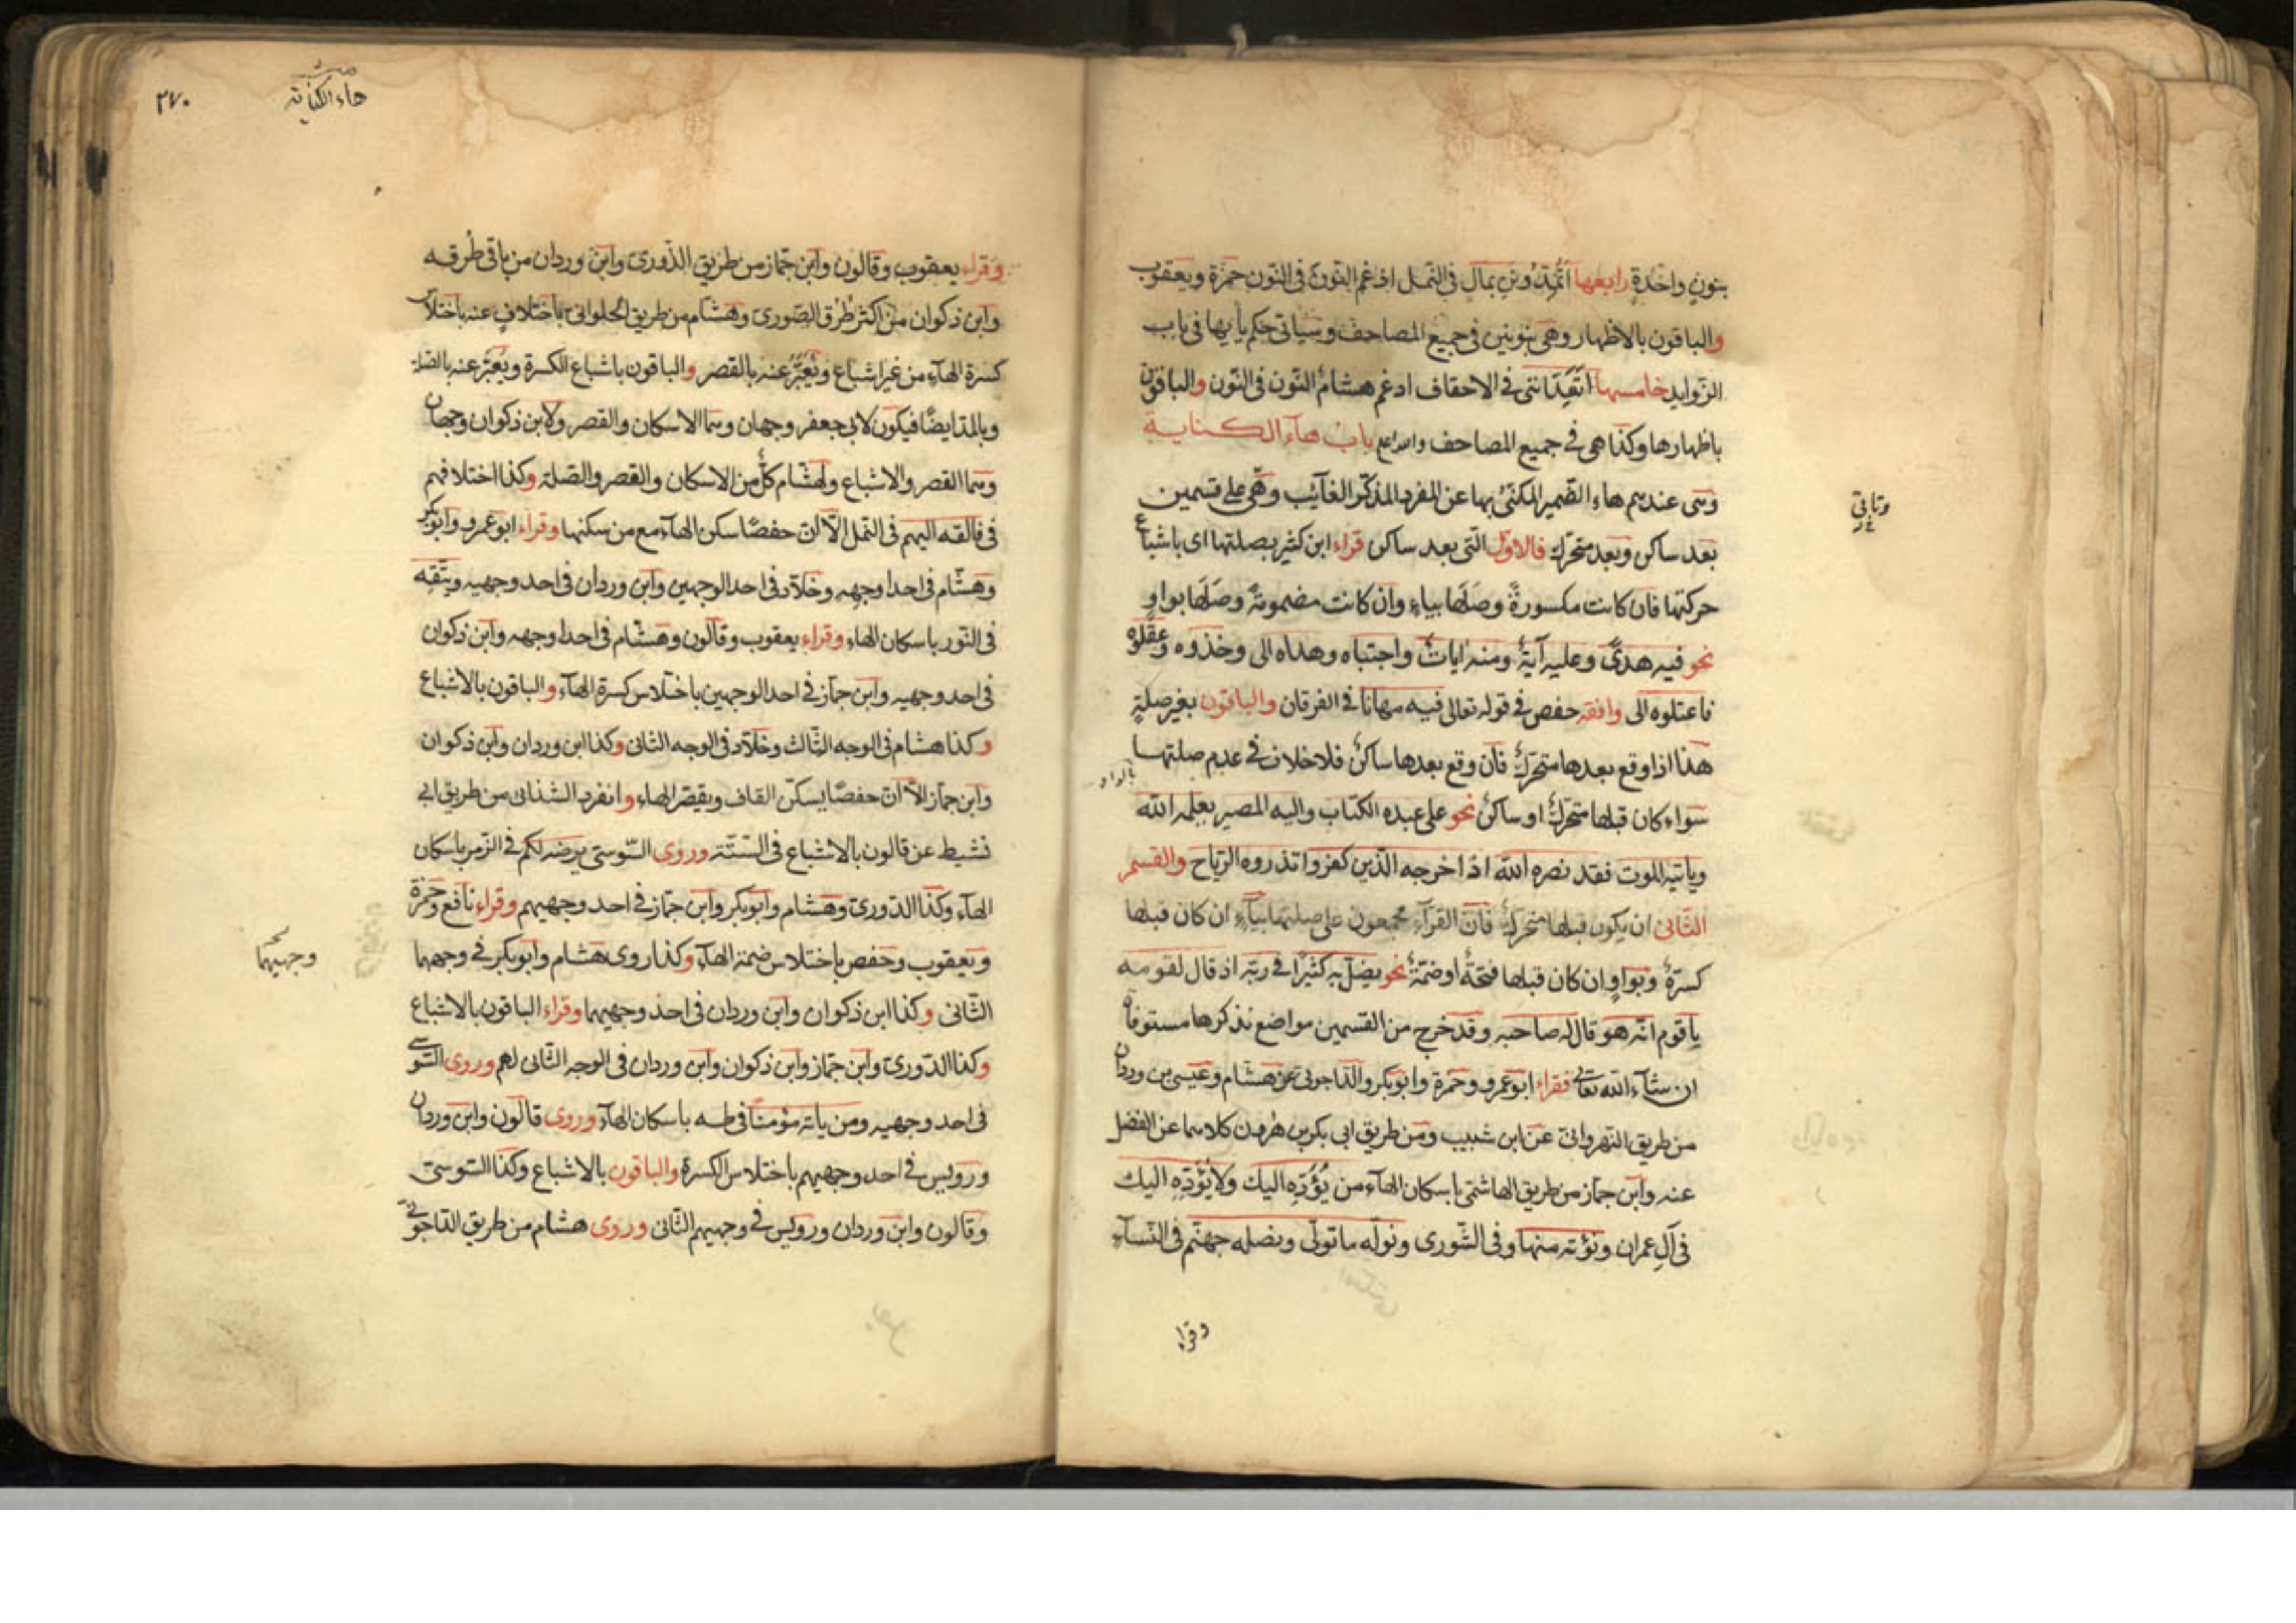 بنونٍ واحدةٍ رابعها أتُمِدُّونَنِ بمالٍ في النّمل ادغم النّون في النّون حمزة ويعقوب
والباقون بالاظهار وهي بنونين في جميع المصاحف وسياتي حكم يايها في باب
الزّوايد خامسها أتعِدَانني في الاحقاف ادغم هشامٌ النّون في النّون والباقون
باظهارها وكذا هي في جميع المصاحف والله اعلم باب هآء الكناية
وتسمى عندهم هاء الضّمير المكنّى بها عن المفرد المذكّر الغآئب وهي على قسمين
بعد ساكن وبعد متحرّك فالاوّل التي بعد ساكن قراء ابن كثير بصلتها اى باشباع
حركتها فان كانت مكسورةً وصَلَها بياءٍ وان كانت مضمومةً وصَلَها بواوٍ
نحو فيه هدىً وعليه آيةٌ ومنه اياتٌ واجتباه وهداه الى وخذوه وعقلوه
فاعتلوه الى وافقه حفص في قوله تعالى فيه مهانا في الفرقان والباقون بغير صلةٍ
هذا اذا وقع بعدها متحرّكٌ فان وقع بعدها ساكنٌ فلا خلاف في عدم صلتها
بالواو
سواء كان قبلها متحرّكٌ او ساكنٌ نحو على عبده الكتاب واليه المصير يعلمه الله
وياتيه الموت فقد نصره الله اذ اخرجه الّذين كفروا تذروه الرّياح والقسم
الثّاني ان يكون قبلها متحرّكٌ فانّ القرّآء مجمعون على صلتها بيآءٍ ان كان قبلها
كسرةٌ وبواوٍ ان كان قبلها فتحةٌ او ضمّةٌ نحو يضلّ به كثيرًا في ربّه اذ قال لقومه
ياقوم انّه هو قال له صاحبه وقد خرج من القسمين مواضع نذكرها مستوفاة
ان شآء الله تعالى فقراء ابو عمرو وحمزة وابو بكر والدّاجوني عن هشام وعيسى بن وردان
من طريق النّهرواني عن ابن شبيب ومن طريق ابي بكر بن هٰرون كلاهما عن الفضل
عنه وابن جمّاز من طريق الهاشمّي باسكان الهآء من يُؤَدِّه اليك ولا يُؤَدِّه اليك
في آل عمران ونؤته منها وفي الشّورى ونولّه ما تولّى ونصله جهنّم في النّسآء
وقراء
هاء الكناية
٢٧٠
وقراء يعقوب وقالون وابن جمّاز من طريق الدّوري وابن وردان من باقي طُرقه
وابن ذكوان من اكثر طُرق الصّوري وهشام من طريق الحلواني باختلافٍ عنه باختلاس
كسرة الهآء من غير اشباع ويُعَبَّرُ عنه بالقصر والباقون باشباع الكسرة ويُعَبَّر عنه بالصّلة
وبالمدّ ايضًا فيكون لابي جعفر وجهان وهما الاسكان والقصر ولابن ذكوان وجهان
وهما القصر والاشباع ولهشام كلٌّ من الاسكان والقصر والصّلة وكذا اختلافهم
في فالقه اليهم في النّمل الّا انّ حفصًا سكن الهآء مع من سكنها وقراء ابو عمرو وابو بكر
وهشّام في احد اوجهه وخلّاد في احد الوجهين وابن وردان في احد وجهيه ويتّقه
في النّور باسكان الهاء وقراء يعقوب وقالون وهشّام في احد اوجهه وابن ذكوان
في احد وجهيه وابن جمّاز في احد الوجهين باختلاس كسرة الهآء والباقون بالاشباع
وكذا هشام في الوجه الثّالث وخلّاد في الوجه الثاني وكذا ابن وردان وابن ذكوان
وابن جمّاز الّا انّ حفصًا يسكّن القاف ويقصر الهاء وانفرد الشذائي من طريق ابي
نشيط عن قالون بالاشباع في السّتّة وروى السّوسّي يرضه لكم في الزّمر باسكان
الهآء وكذا الدّوري وهشام وابو بكر وابن جمّاز في احد وجهيهم وقراء نافع وحمزة
ويعقوب وحفص باختلاس ضمّة الهآء وكذا روى هشام وابو بكر في وجهها
وجهيهما
الثّاني وكذا ابن ذكوان وابن وردان في احد وجهيهما وقراء الباقون بالاشباع
وكذا الدّوري وابن جمّاز وابن ذكوان وابن وردان في الوجه الثّاني لهم وروى السّوسي
في احد وجهيه ومن ياته مؤمنًا في طه باسكان الهآء وروى قالون وابن وردان
ورويس في احد وجهيهم باختلاس الكسرة والباقون بالاشباع وكذا السّوسّي
وقالون وابن وردان ورويس في وجهيهم الثّاني وروى هشام من طريق الدّاجوني